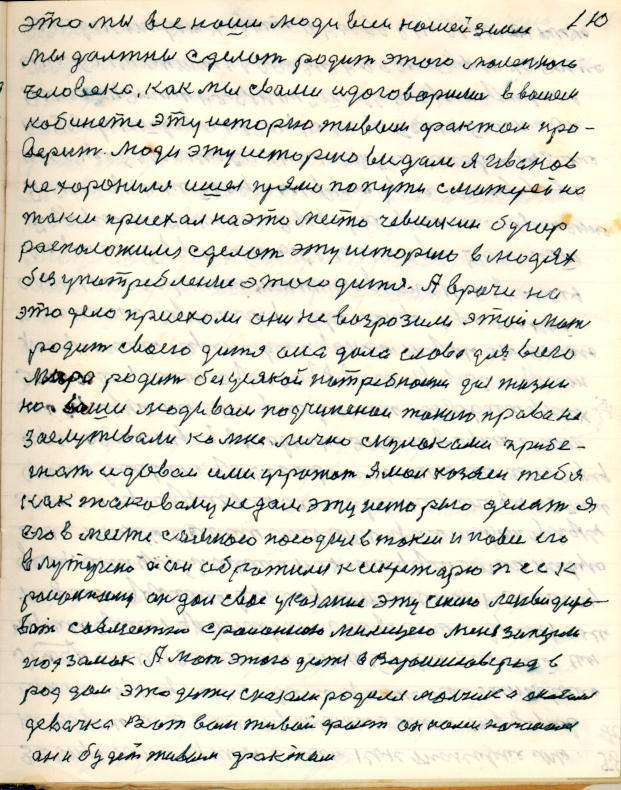 110
это мы все наши люди всей нашей земли
мы должны сделат родит этого маленького
человека, как мы свами идоговорили ввашем
кабинети эту историю живым фактом про-
верит. люди эту историю видали я Иванов
нехорониля ишел прямо попути сматерей на
такси приехал наэто место чевилкин бугор
расположился сделат эту историю в людях
без употребление этого дитя. А врачи на
это дело приехали они не возрозили этой мат
родит своего дитя она дала слово для всего
мира родит безвсякой потребности для жизни
но ваши люди вам подчиненои такого права не
заслуживали ка мне лично скулоками прибе-
гнат идавай ими угрожат Ямол хозяен тебя
как такового недам эту историю делат я
его в место самного посадил в такси и повез его
влутугино они обратилис к секретарю п с с к
районному он дал свое указание эту силу леквидиро-
ват совместно срайонною милицею меня заперли
подзамок А мат этого дитя в Ворошиловград в
род дом это дитя сказали родила малчика оказалас
девачка Вот вам живой факт он нами начался
он и будет живым фактам